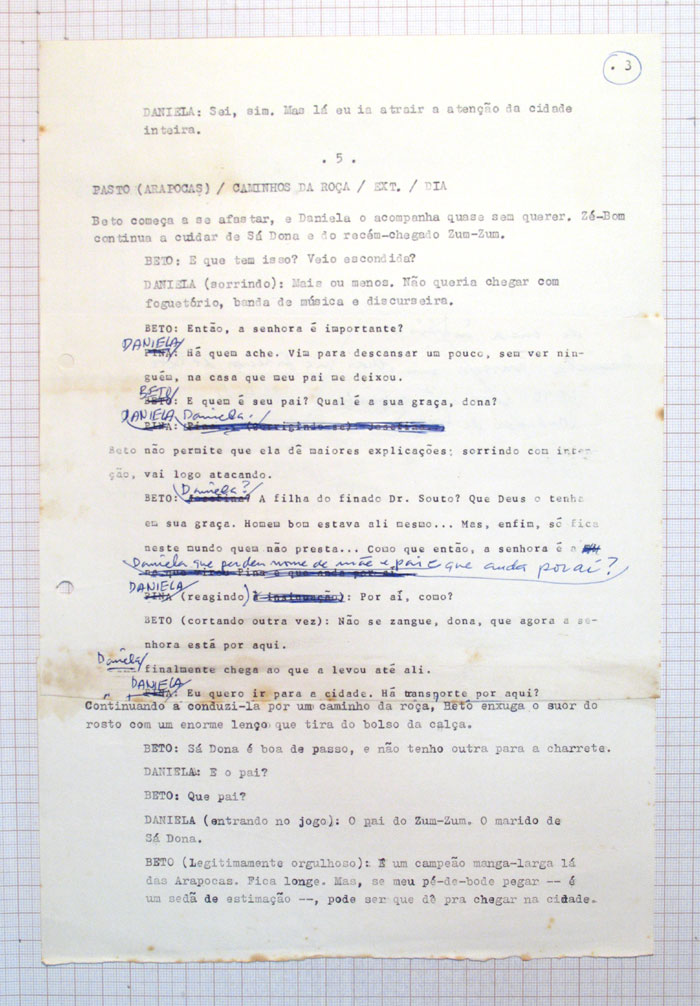 . 3
DANIELA: Sei, sim. Mas lá eu ia atrair a atenção da cidade
inteira.
. 5 .
PASTO (ARAPOCAS) / CAMINHOS DA ROÇA / EXT. / DIA
Beto começa a se afastar, e Daniela o acompanha quase sem querer. Zé-Bom
continua a cuidar de Sá Dona e do recém-chegado Zum-Zum.
BETO: E que tem isso? Veio escondida?
DANIELA (sorrindo): Mais ou menos. Não queria chegar com
foguetório, banda de música e discurseira.
BETO: Então, a senhora é importante?
DANIELA/
PINA: Há quem ache. Vim para descansar um pouco, sem ver nin-
guém, na casa que meu pai me deixou.
BETO/
BETO: E quem é seu pai? Qual é a sua graça, dona?
DANIELA, Daniela./
PINA: (corrigindo-se) Josefina
Beto não permite que ela dê maiores explicações; sorrindo com inten-
ção, vai logo atacando.
Daniela?/
BETO: Josefina? A filha do finado Dr. Souto? Que Deus o tenha
em sua graça. Homem bom estava ali mesmo... Mas, enfim, só fica
neste mundo quem não presta... Como que então, a senhora é a
Daniela que perdeu nome de mãe e pai e que anda por aí?
que virou Pina e que anda por aí
DANIELA/
PINA (reagindo) à insinuação): Por aí, como?
BETO (cortando outra vez): Não se zangue, dona, que agora a se-
nhora está por aqui.
Daniela/
finalmente chega ao que a levou até ali.
DANIELA/
PINA: Eu quero ir para a cidade. Há transporte por aqui?
Continuando a conduzi-la por um caminho da roça, Beto enxuga o suor do
rosto com um enorme lenço que tira do bolso da calça.
BETO: Sá Dona é boa de passo, e não tenho outra para a charrete.
DANIELA: E o pai?
BETO: Que pai?
DANIELA (entrando no jogo): O pai do Zum-Zum. O marido de
Sá Dona.
BETO (Legitimamente orgulhoso): É um campeão manga-larga lá
das Arapocas. Fica longe. Mas, se meu pé-de-bode pegar -- é
um sedã de estimação --, pode ser que dê pra chegar na cidade.